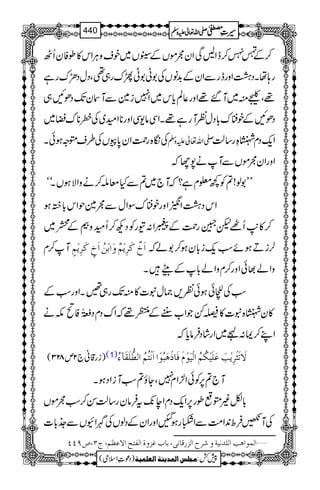 سیرتِ مصطفیٰ صلی اللہ تعالیٰ علیہ وسلم 440
کر کے تہس نہس کر ڈالیں گی ان مجرموں کے سینوں میں خوف و ہراس کا طوفان اُٹھ
رہا تھا۔ دہشت اور ڈر سے ان کے بدنوں کی بوٹی بوٹی پھڑک رہی تھی، دل دھڑک رہے
تھے، کلیجے منہ میں آ گئے تھے اور عالم یاس میں انہیں زمین سے آسمان تک دھوئیں ہی
دھوئیں کے خوفناک بادل نظر آ رہے تھے۔ اسی مایوسی اور ناامیدی کی خطرناک فضا میں
ایک دم شہنشاہِ رسالت صلی اللہ تعالیٰ علیہ وسلم کی نگاہِ رحمت ان پاپیوں کی طرف متوجہ ہوئی۔
اور ان مجرموں سے آپ نے پوچھا کہ
’’بولو! تم کو کچھ معلوم ہے؟ کہ آج میں تم سے کیا معاملہ کرنے والا ہوں۔‘‘
اس دہشت انگیز اور خوفناک سوال سے مجرمین حواس باختہ ہو
کر کانپ اُٹھے لیکن جبینِ رحمت کے پیغمبرانہ تیور کو دیکھ کر اُمید و بیم کے محشر میں
لرزتے ہوئے سب یک زبان ہو کر بولے کہ اَخٌ كَرِيْمٌ وَابْنُ اَخٍ كَرِيْمٍ آپ کرم
والے بھائی اور کرم والے باپ کے بیٹے ہیں۔
سب کی للچائی ہوئی نظریں جمالِ نبوت کا منہ تک رہی تھیں۔ اور سب کے
کان شہنشاہِ نبوت کا فیصلہ کن جواب سننے کے منتظر تھے کہ اک دم دفعۃً فاتح مکہ نے
اپنے کریمانہ لہجے میں ارشاد فرمایا کہ
لَا تَثْرِيْبَ عَلَيْكُمُ الْيَوْمَ فَاذْهَبُوْا اَنْتُمُ الطُّلَقَآءُ (1) (زرقانی ج۲ ص۳۲۸)
آج تم پر کوئی الزام نہیں، جاؤ تم سب آزاد ہو۔
بالکل غیر متوقع طور پر ایک دم اچانک یہ فرمانِ رسالت سن کر سب مجرموں
کی آنکھیں فرطِ ندامت سے اشکبار ہو گئیں اور ان کے دلوں کی گہرائیوں سے جذبات
......المواهب اللدنية و شرح الزرقانى، باب غزوة الفتح الاعظم، ج٣، ص٤٤٩
پیش کش: مجلس المدينة العلمية (دعوتِ اسلامی)